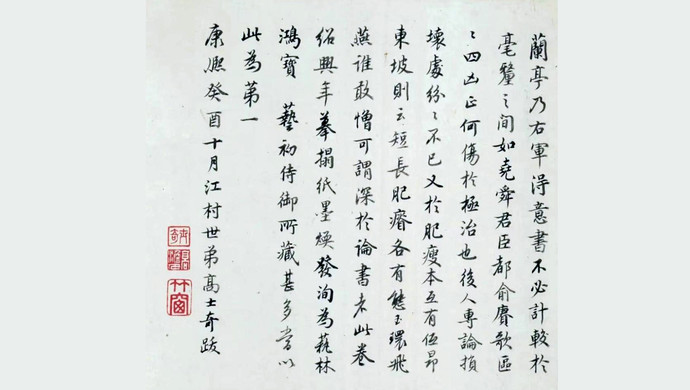 蘭亭乃右軍得意書不必計較於
毫釐之間如堯舜君臣都俞賡歌區
〻四凶正何傷於極治也後人專論損
壞處紛〻不已又於肥瘦本互有低昂
東坡則云短長肥瘠各有態玉環飛
燕誰敢憎可謂深於論書者此卷
紹興年摹搨紙墨煥發洵為藝林
鴻寶 藝初侍御所藏甚多當以
此為第一
康熙癸酉十月江村世弟高士奇跋
竹窗